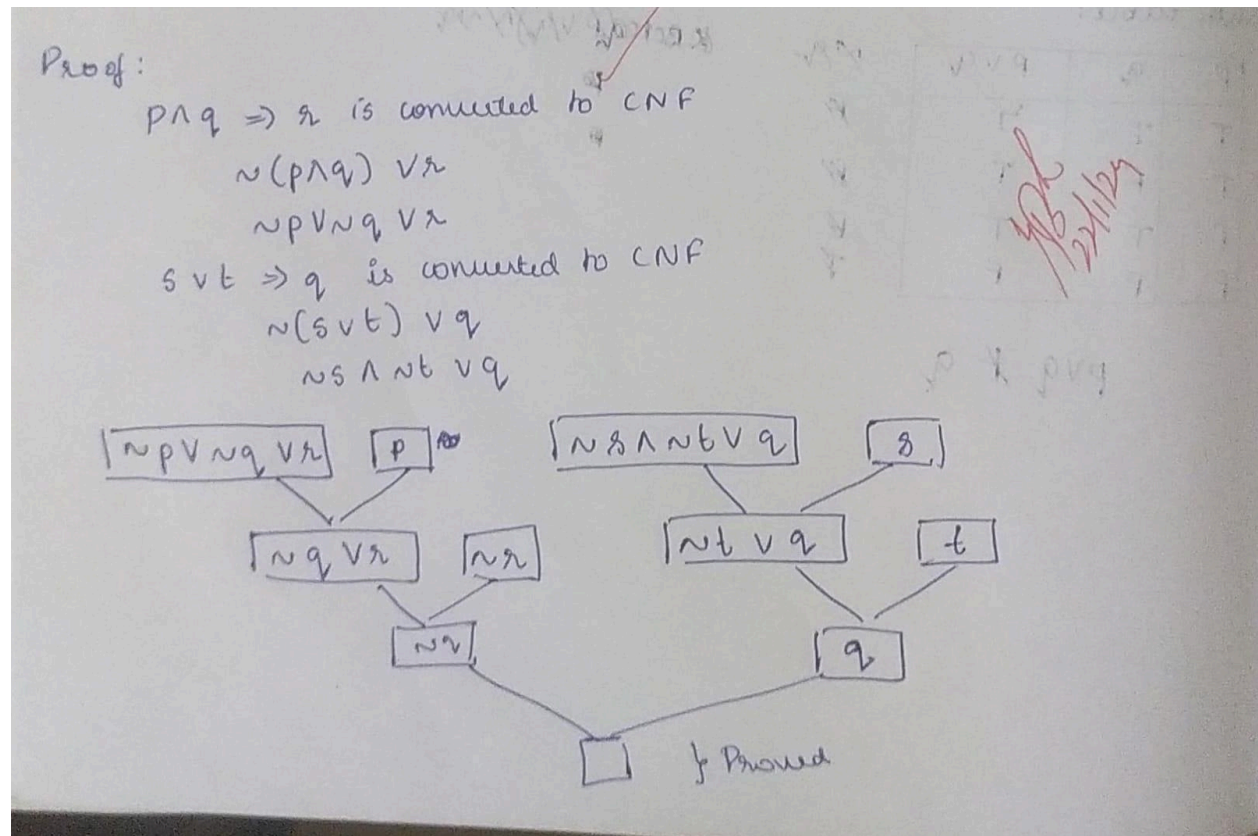 Proof:
p∧q ⇒ r is converted to CNF
~(p∧q) ∨r
~p∨~q ∨r
s∨t ⇒ q is converted to CNF
~(s∨t) ∨q
~s ∧ ~t ∨q
~p∨~q ∨r p ~s∧~t∨q s
~q ∨r ~r ~t ∨ q t
~q q
} Proved
22/1/24
p∨q